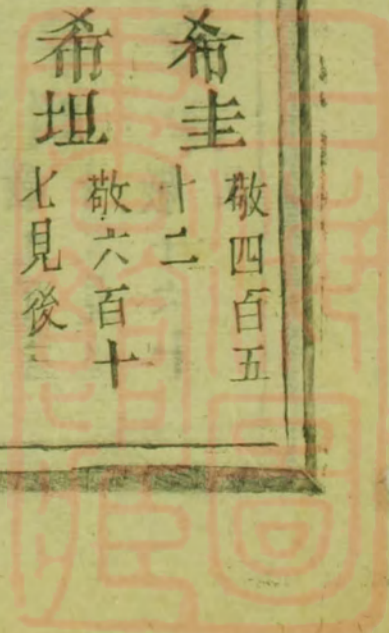 希圭
敬四百五
十二
希坦
敬六百十
七見後